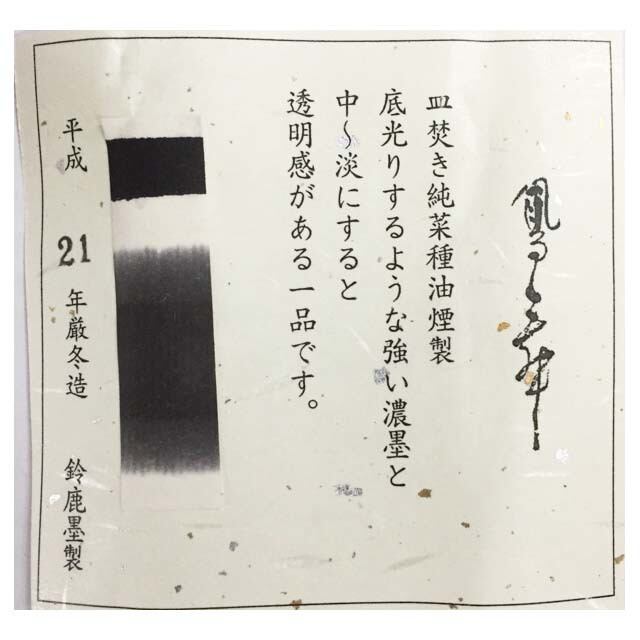 皿焚き純菜種油煙製
底光りするような強い濃墨と
中～淡にすると
透明感がある一品です。
平成 21 年厳冬造 鈴鹿墨製